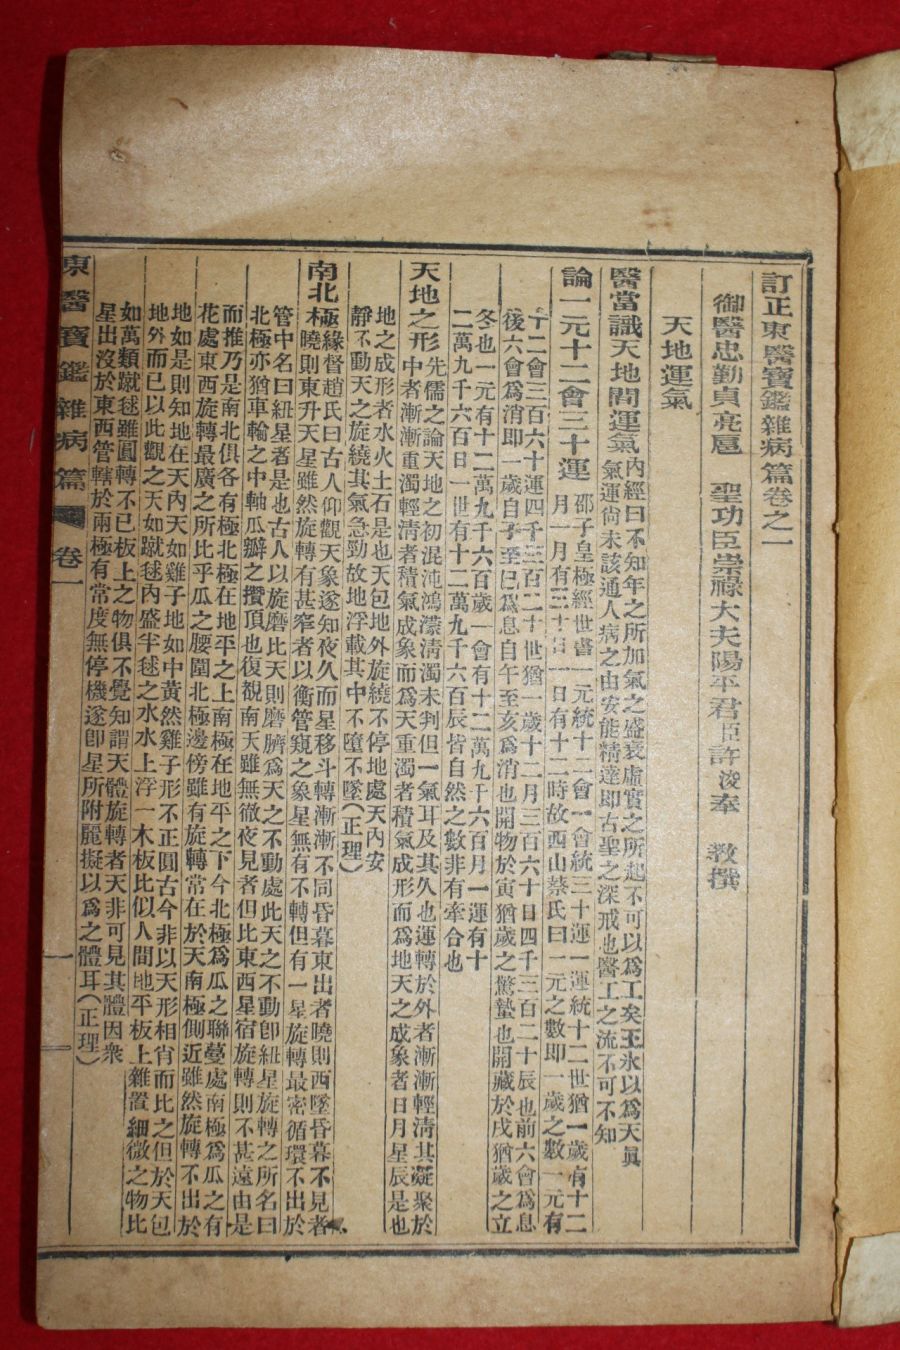 訂正東醫寶鑑雜病篇卷之一
御醫忠勤貞亮扈 聖功臣崇祿大夫陽平君臣許浚奉 教撰
天地運氣
醫當識天地間運氣
內經曰不知年之所加氣之盛衰虛實之所起不可以爲工矣王氷以爲天眞
氣運尙未該通人病之由安能精達卽古聖之深戒也醫工之流不可不知
論一元十二會三十運
邵子皇極經世書一元統十二會一會統三十運一運統十二世猶一歲有十二
月一月有三十日一日有十二時故西山蔡氏曰一元之數卽一歲之數一元有
十二會三百六十運四千三百二十世猶一歲十二月三百六十日四千三百二十辰也前六會爲息
後六會爲消卽一歲自子至巳爲息自午至亥爲消也開物於寅猶歲之驚蟄也開藏於戌猶歲之立
冬也一元有十二萬九千六百歲一會有十二萬九千六百月一運有十
二萬九千六百日一世有十二萬九千六百辰皆自然之數非有牽合也
天地之形
先儒之論天地之初混沌鴻濛淸濁未判但一氣耳及其久也運轉於外者漸漸輕淸其凝聚於
中者漸漸重濁輕淸者積氣成象而爲天重濁者積氣成形而爲地天之成象者日月星辰是也
地之成形者水火土石是也天包地外旋繞不停地處天內安
靜不動天之旋繞其氣急勁故地浮載其中不墮不墜(正理)
南北極
緣督趙氏曰古人仰觀天象遂知夜久而星移斗轉漸漸不同昏暮東出者曉則西墜昏暮不見者
曉則東升天星雖然旋轉有甚窄者以衡管窺之象星無有不轉但有一星旋轉最密循環不出於
管中名曰紐星者是也古人以旋磨比天則磨臍爲天之不動處此天之不動卽紐星旋轉之所名曰
北極亦猶車輪之中軸瓜瓣之攢頂也復覩南天雖無徹夜見者但比東西星宿旋轉則不甚遠由是
而推乃是南北俱各有極北極在地平之上南極在地平之下今北極爲瓜之聯蔓處南極爲瓜之有
花處東西旋轉最廣之所比乎瓜之腰圍北極邊傍雖有旋轉常在於天南極側近雖然旋轉不出於
地如是則知地在天內天如雞子地如中黃然雞子形不正圓古今非以天形相肖而比之但於天包
地外而已以此觀之天如蹴毬內盛半毬之水水上浮一木板比似人間地平板上雜置細微之物比
如萬類蹴毬雖圓轉不已板上之物俱不覺知謂天體旋轉者天非可見其體因衆
星出沒於東西管轄於兩極有常度無停機遂卽星所附麗擬以爲之體耳(正理)
東醫寶鑑雜病篇 卷一 一